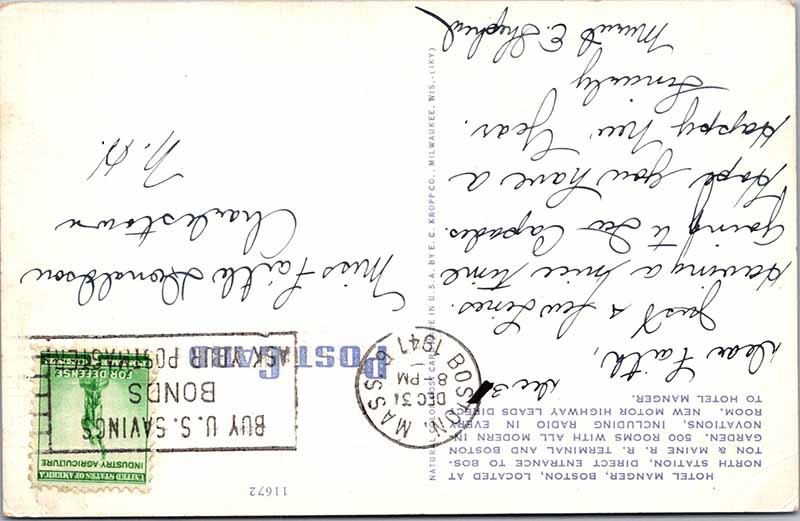 HOTEL MANGER, BOSTON, LOCATED AT
NORTH STATION, DIRECT ENTRANCE TO BOS-
TON & MAINE R. R. TERMINAL AND BOSTON
GARDEN. 500 ROOMS WITH ALL MODERN IN-
NOVATIONS, INCLUDING RADIO IN EVERY
ROOM. NEW MOTOR HIGHWAY LEADS DIRECT
TO HOTEL MANGER.
Dec 31
Dear Faith,
Just a few lines.
Having a nice time
Going to Ice Capades.
Hope you have a
Happy New Year.
Sincerely
Muriel E. Shepherd
NATURAL COLOR POST CARD MADE IN U. S. A. BY E. C. KROPP CO., MILWAUKEE, WIS.-(1KY)
11672
POST CARD
BOSTON, MASS.
DEC 31
8 PM
1941
BUY U.S. SAVINGS
BONDS
ASK YOUR POSTMASTER
UNITED STATES OF AMERICA
INDUSTRY AGRICULTURE
FOR DEFENSE
Miss Faith Donaldson
Charlestown
N. H.